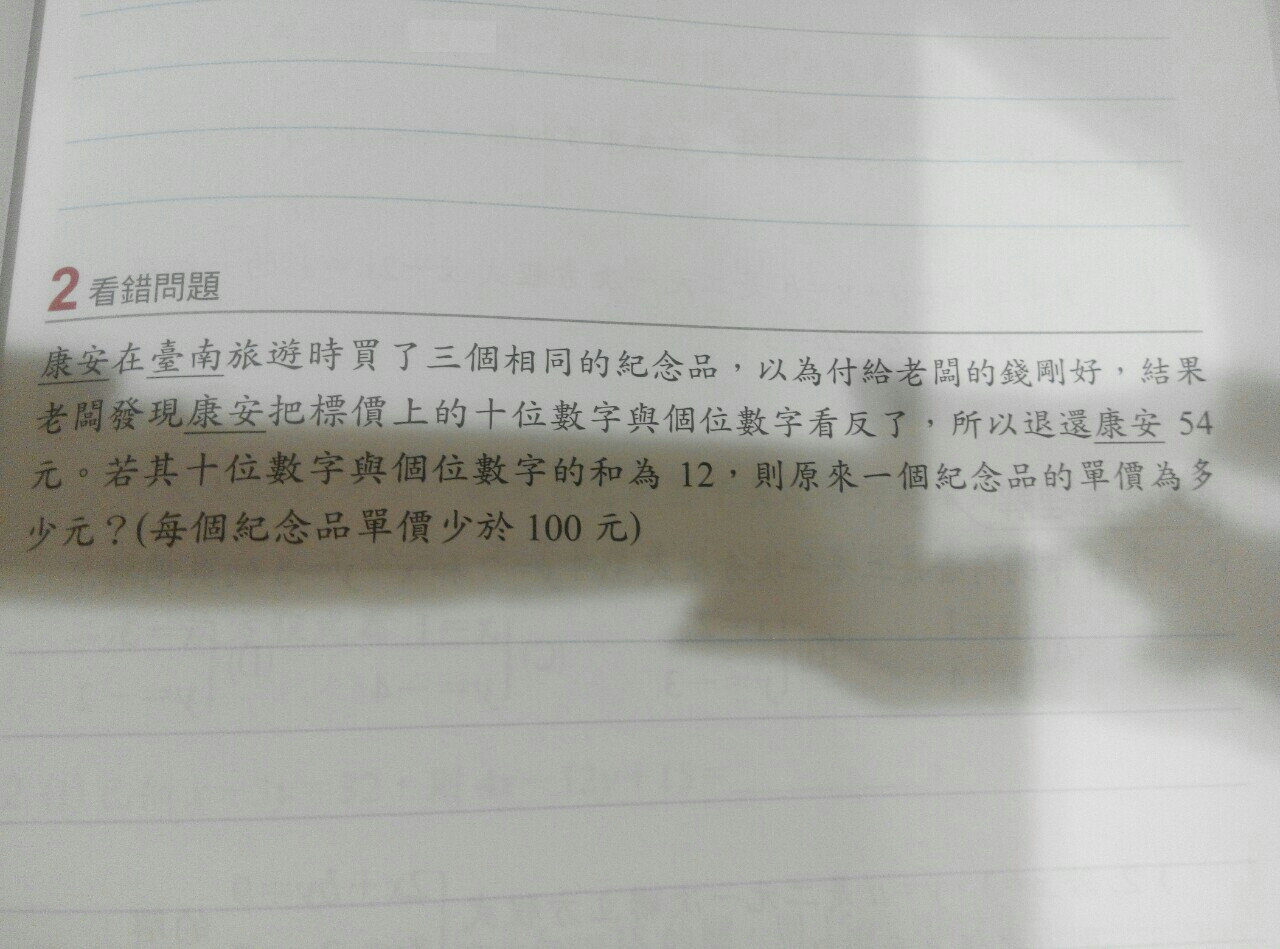 2 看錯問題
康安在臺南旅遊時買了三個相同的紀念品，以為付給老闆的錢剛好，結果
老闆發現康安把標價上的十位數字與個位數字看反了，所以退還康安 54
元。若其十位數字與個位數字的和為 12，則原來一個紀念品的單價為多
少元？(每個紀念品單價少於 100 元)